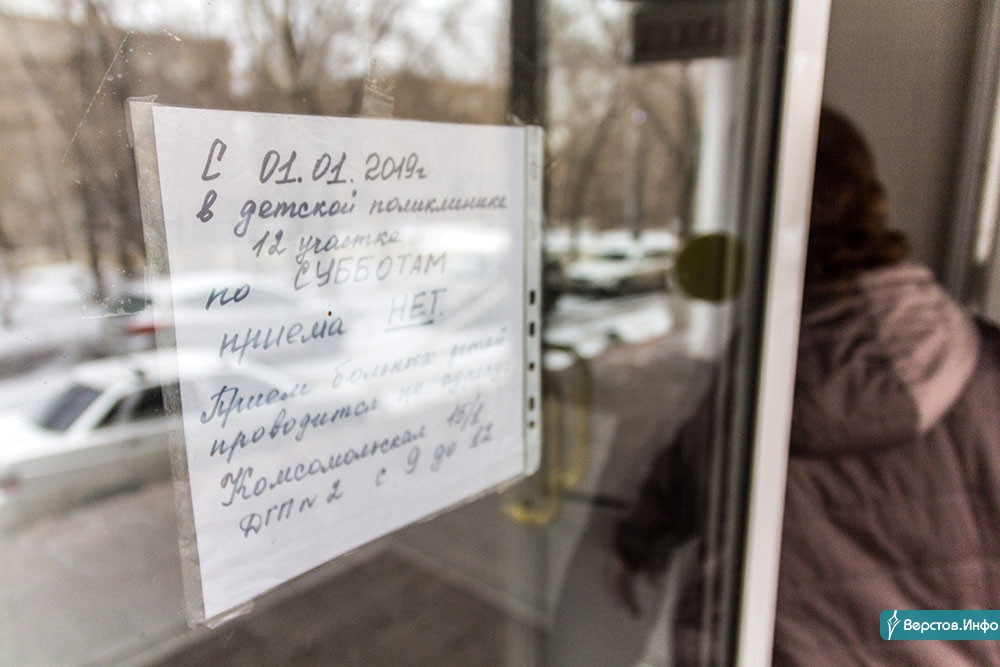 С 01.01.2019г
в детской поликлинике
12 участка
по СУББОТАМ
приема НЕТ.
Прием больных детей
проводится по адресу:
Комсомольская 15/1
ДГП № 2 с 9 до 12
Верстов.Инфо